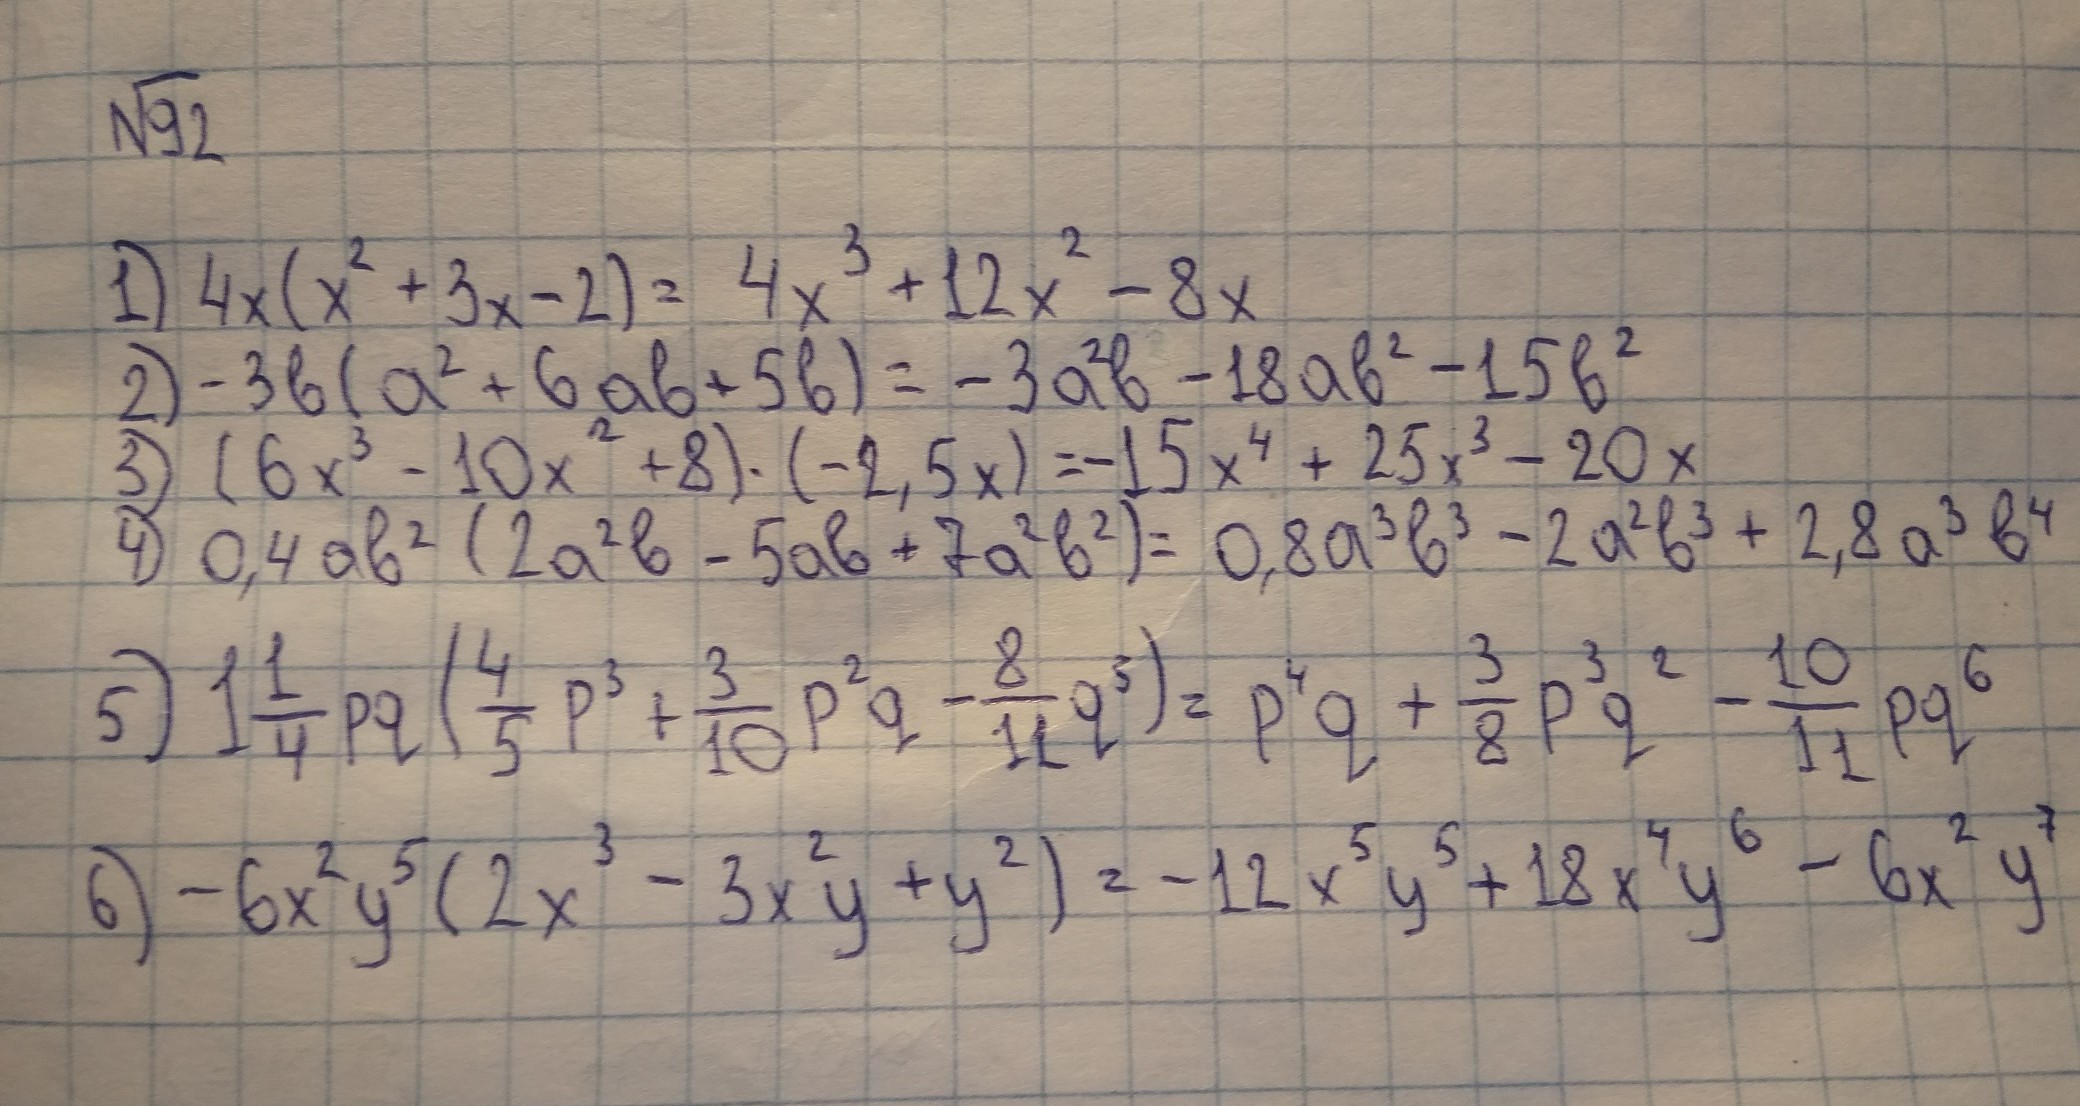 №92
1) 4x(x² + 3x - 2) = 4x³ + 12x² - 8x
2) -3b(a² + 6ab + 5b) = -3a²b - 18ab² - 15b²
3) (6x³ - 10x² + 8)·(-2,5x) = -15x⁴ + 25x³ - 20x
4) 0,4ab² (2a²b - 5ab + 7a²b²) = 0,8a³b³ - 2a²b³ + 2,8a³b⁴
5) 1 1/4 pq (4/5 p³ + 3/10 p²q - 8/11 q⁵) = p⁴q + 3/8 p³q² - 10/11 pq⁶
6) -6x²y⁵(2x³ - 3x²y + y²) = -12x⁵y⁵ + 18x⁴y⁶ - 6x²y⁷